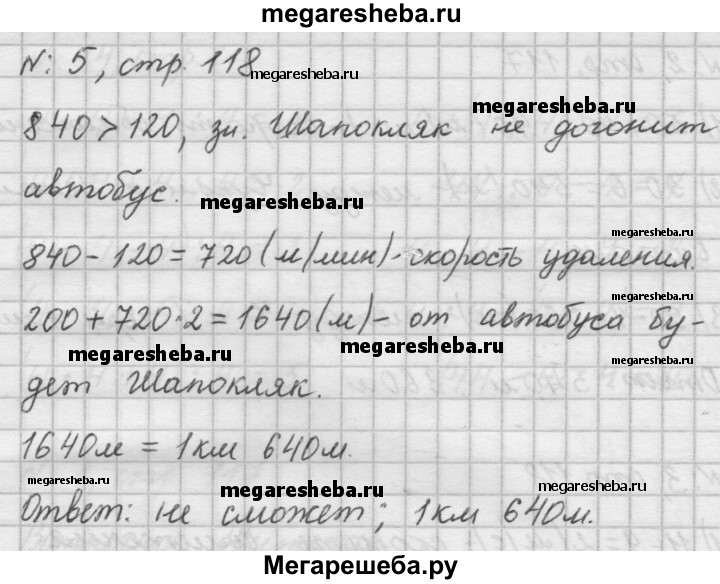 megaresheba.ru
№ 5, стр. 118
megaresheba.ru
megaresheba.ru
840 > 120, зн. Шапокляк не догонит
автобус.
megaresheba.ru
megaresheba.ru
840 - 120 = 720 (м/мин) - скорость удаления.
megaresheba.ru
200 + 720·2 = 1640 (м) - от автобуса бу-
megaresheba.ru
megaresheba.ru
megaresheba.ru
дет Шапокляк.
1640м = 1км 640м.
megaresheba.ru
megaresheba.ru
megaresheba.ru
Ответ: не сможет; 1км 640м.
Мегарешеба.ру